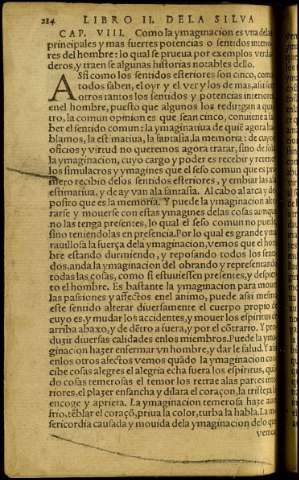 284 LIBRO II. DE LA SILVA
CAP. VIII. Como la ymaginacion es vna delas
principales y mas fuertes potencias o sentidos interio
res del hombre: lo qual se prueua por exemplos verda
deros, y traen se algunas historias notables dello.
ASsi como los sentidos esteriores son cinco, como
todos saben, el oyr y el ver y los de mas, assi
otros tantos los sentidos y potencias interiores
enel hombre, puesto que algunos los reduzgan a qua
tro, la comun opinion es que sean cinco, conuiene a sa
ber el sentido comun: la ymaginatiua de quiē agora ha
blamos, la estimatiua, la fantasia, la memoria: de cuyos
officios y virtud no queremos agora tratar, sino de sola
la ymaginacion, cuyo cargo y poder es recebir y retener
los simulacros y ymagines que el seso comun
mero recibio delos sentidos esteriores, y embiar las ala
estimatiua, y de ay van ala fantasia. Al cabo al arca y de
posito que es la memoria. Y puede la ymaginacion alte
rarse y mouerse con estas ymagines delas cosas aunque
no las tenga presentes, lo qual el seso comun no puede
sino teniendolas en presencia. Por lo qual es grande y ma
rauillosa la fuerça dela ymaginacion, vemos que el hom
bre estando durmiendo, y reposando todos los senti
dos, anda la ymaginacion del obrando y representando
todas las cosas, como si estuuiessen presentes, y despier
to el hombre. Es bastante la ymaginacion para mouer
las passiones y affectos enel animo, puede assi mesmo
este sentido alterar diuersamente el cuerpo proprio
cuyo es, y mudar los accidentes, y mouer los spiritus de
arriba abaxo, y de dētro a fuera, y por el cōtrario. Y pro
duzir diuersas calidades enlos miembros. Puede la yma
ginacion hazer enfermar vn hombre, y dar le salud. Y assi
enlos otros afectos vemos quādo la ymaginacion con
cibe cosas alegres el alegria echa fuera los espiritus, quā
do cosas temerosas el temor los retrae alas partes inte
riores, el plazer ensancha y dilata el coraçon, la tristeza le
encoge y aprieta. La ymaginacion temerosa haze auer
frio, tēblar el coraçō, priua la color, turba la habla. La mi
sericordia causada y mouida dela ymaginacion delo que